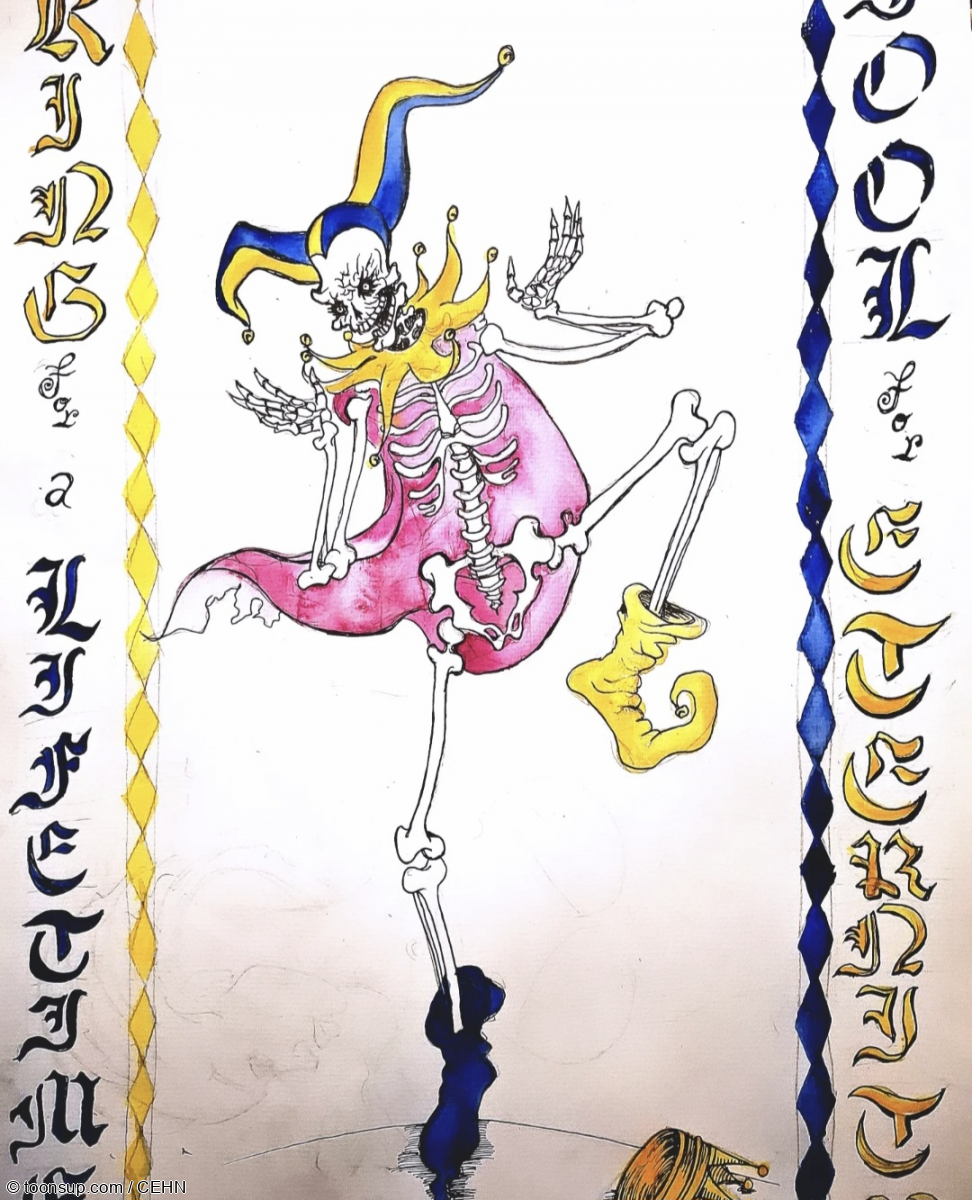 KING
for
a
LIFETIME
FOOL
for
ETERNIT
© toonsup.com / CEHN